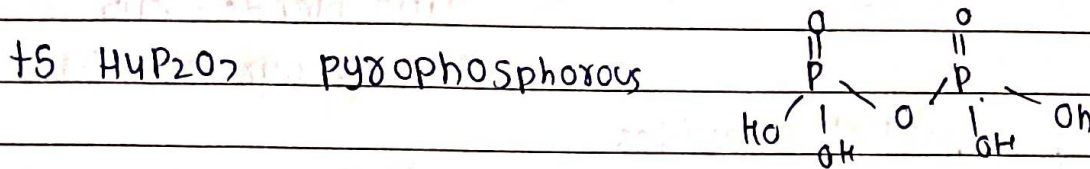 +5 H4P2O7 pyrophosphorous
O O
|| ||
P P
HO | O | Oh
OH OH